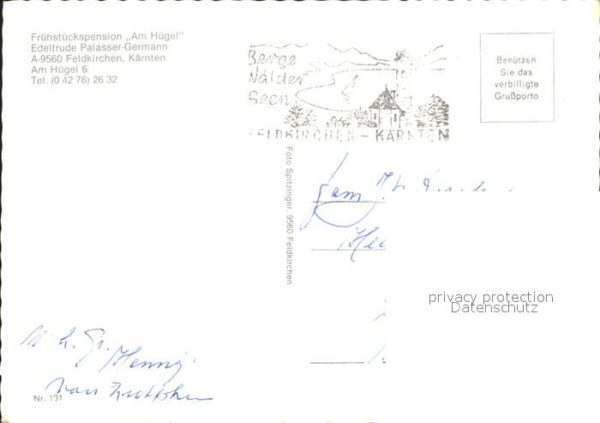 Frühstückspension „Am Hügel"
Edeltrude Palasser-Germann
A-9560 Feldkirchen, Kärnten
Am Hügel 6
Tel. (0 42 76) 26 32
Berge
Wälder
Seen
FELDKIRCHEN - KÄRNTEN
Benützen
Sie das
verbilligte
Grußporto
Foto Spitzinger, 9560 Feldkirchen
Fam.
privacy protection
Datenschutz
Nr. 101